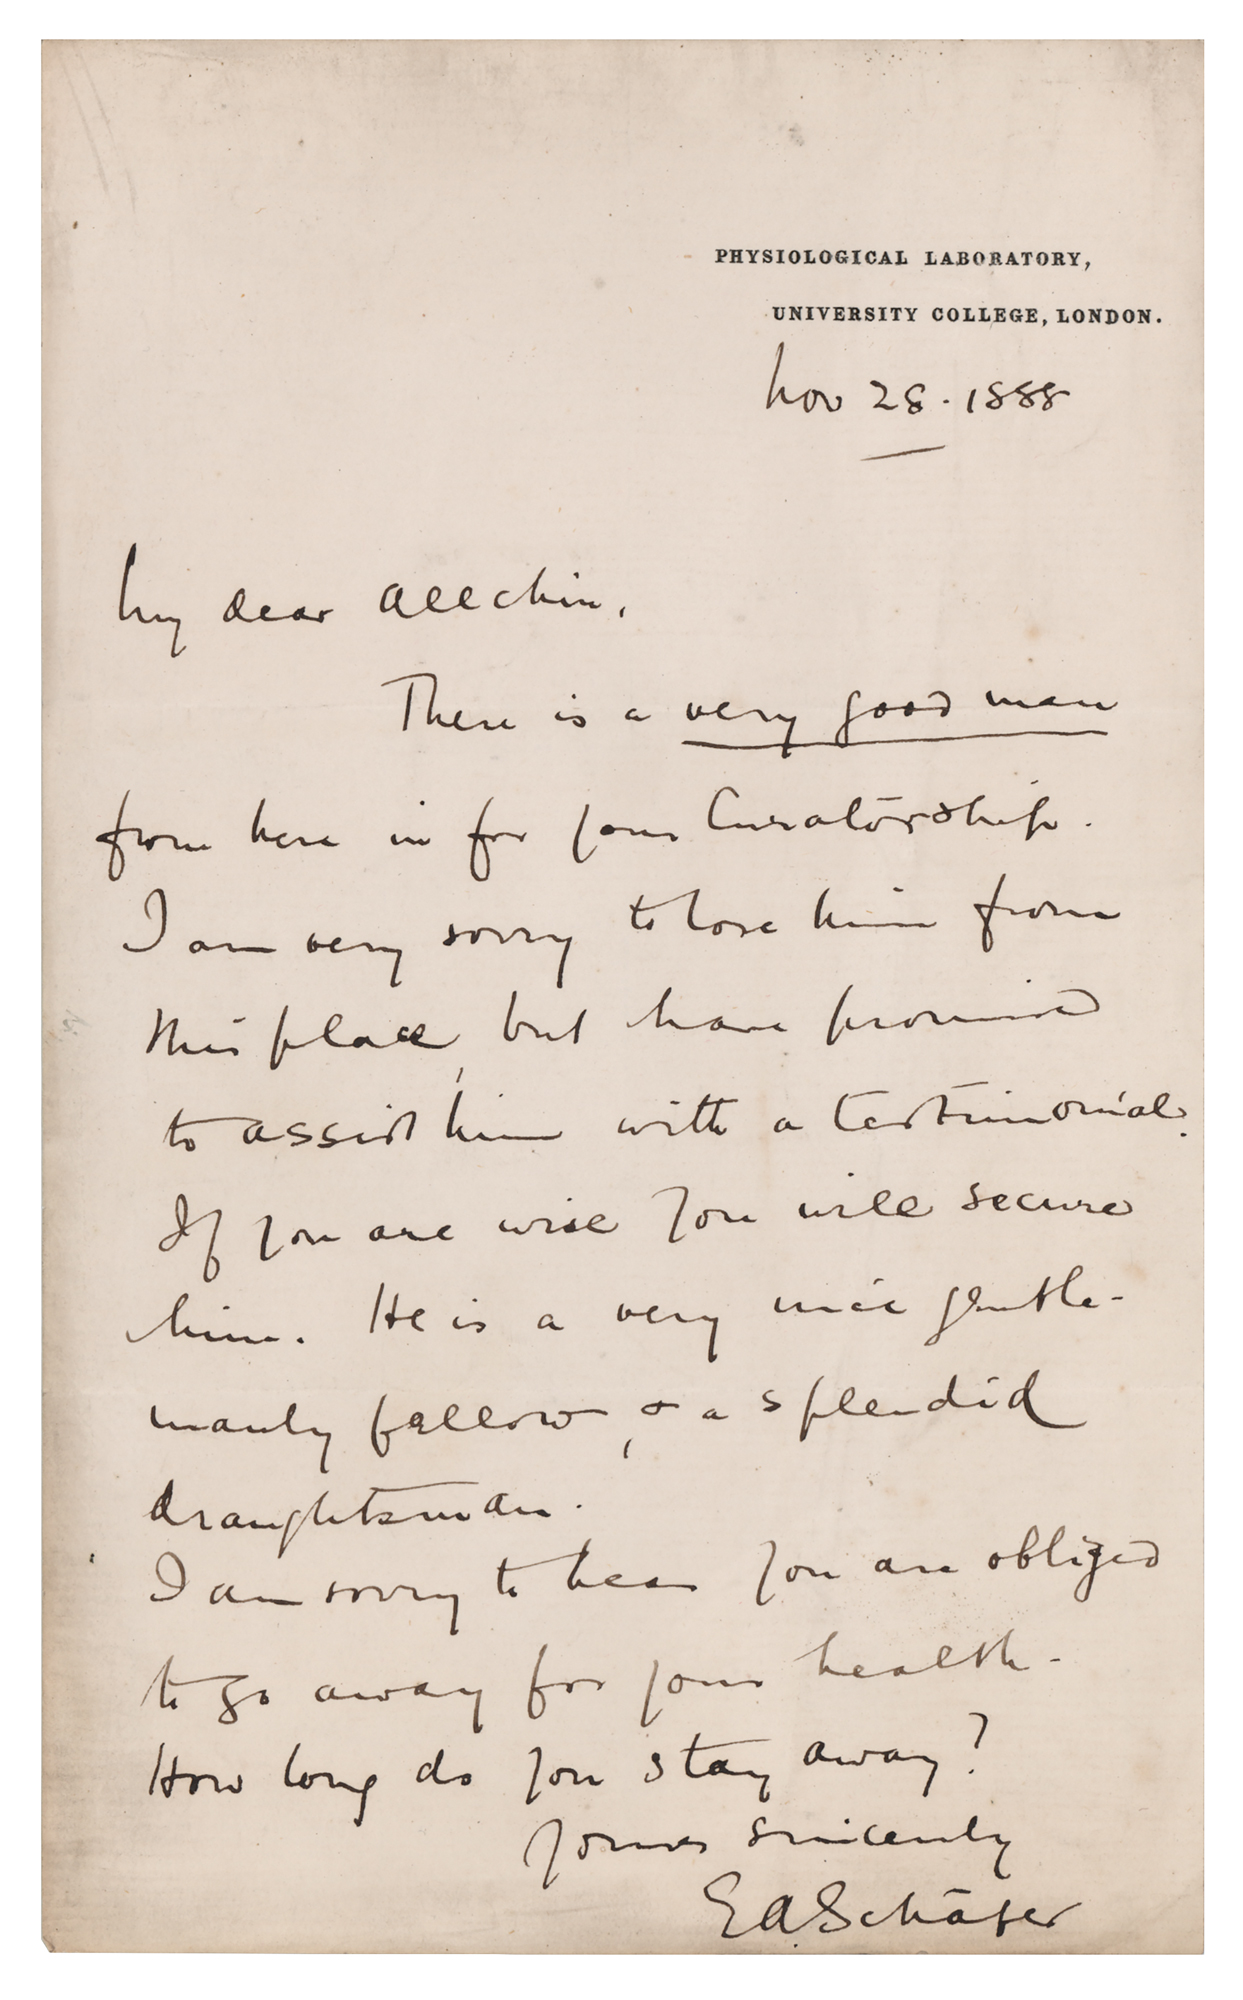 PHYSIOLOGICAL LABORATORY,
UNIVERSITY COLLEGE, LONDON.
Nov 28. 1888
My dear Allchin,
There is a very good man
from here in for your Curatorship.
I am very sorry to lose him from
this place, but have promised
to assist him with a testimonial.
If you are wise you will secure
him. He is a very nice gentle-
manly fellow, & a splendid
draughtsman.
I am sorry to hear you are obliged
to go away for your health.
How long do you stay away?
Yours sincerely
EASchäfer